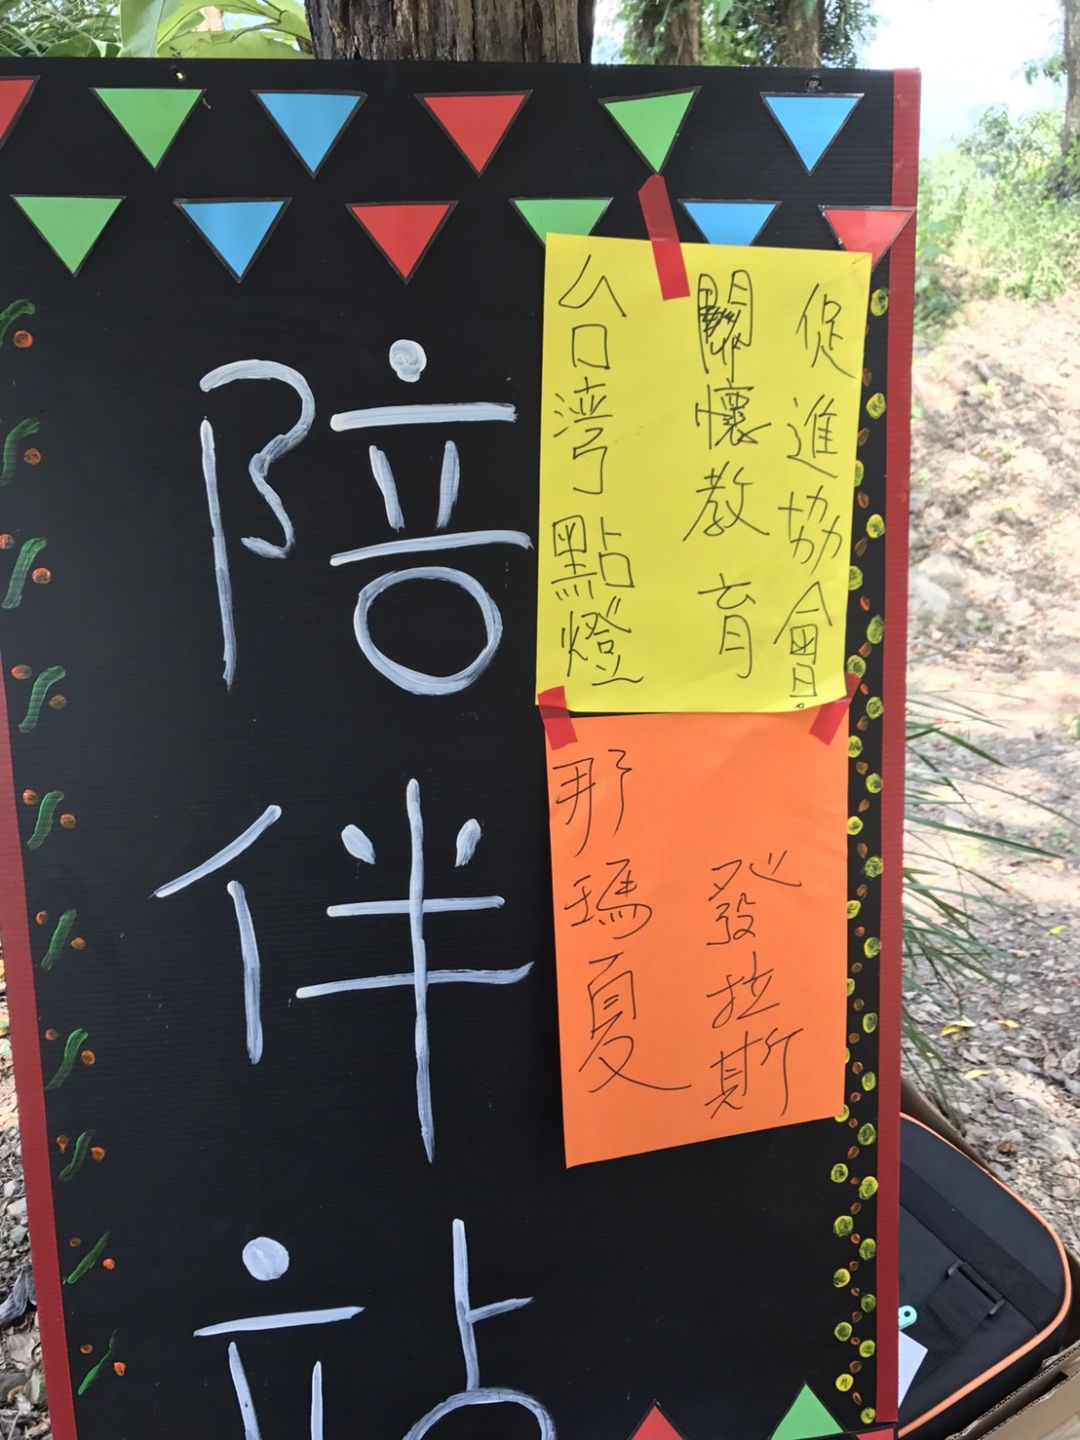 陪伴站
台灣點燈
關懷教育
促進協會
那瑪夏
發拉斯